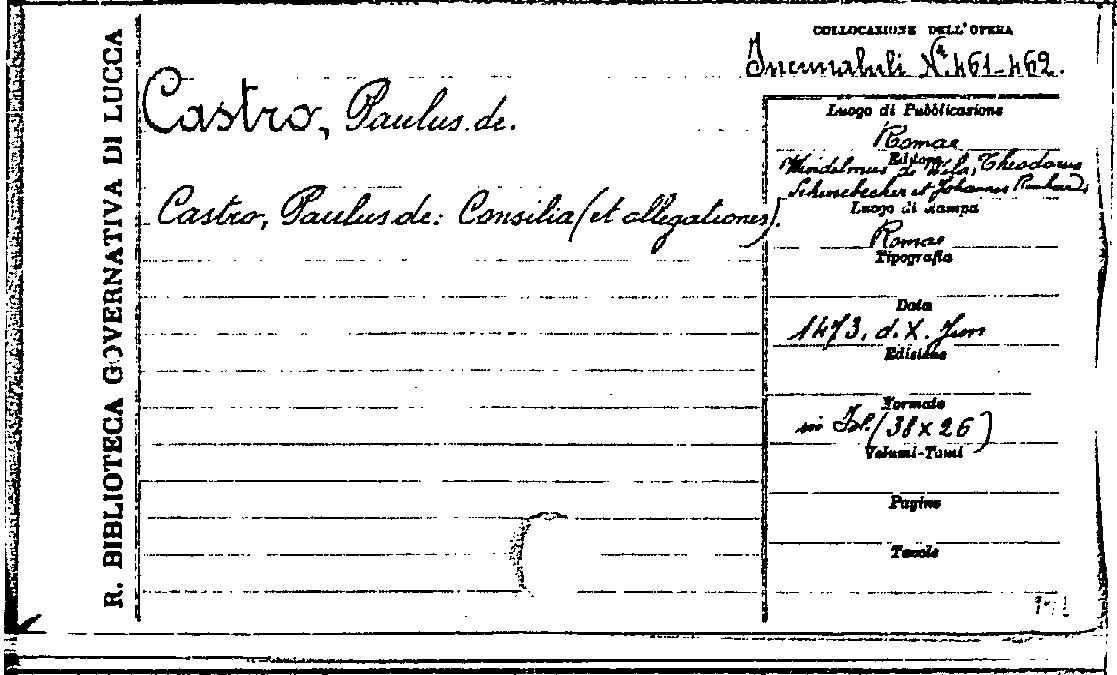 R. BIBLIOTECA GOVERNATIVA DI LUCCA
COLLOCAZIONE DELL'OPERA
Incunabuli Nⁱ. 461-462.
Castro, Paulus de.
Castro, Paulus de: Consilia (et allegationes).
Luogo di Pubblicazione
Romae
Editore
Windelinus de Wila, Theodorus
et Johannes
Luogo di stampa
Romae
Tipografia
Data
1473. d. X. Jun
Edizione
Formato
in Fol. (38 x 26)
Volumi-Tomi
Pagine
Tavole